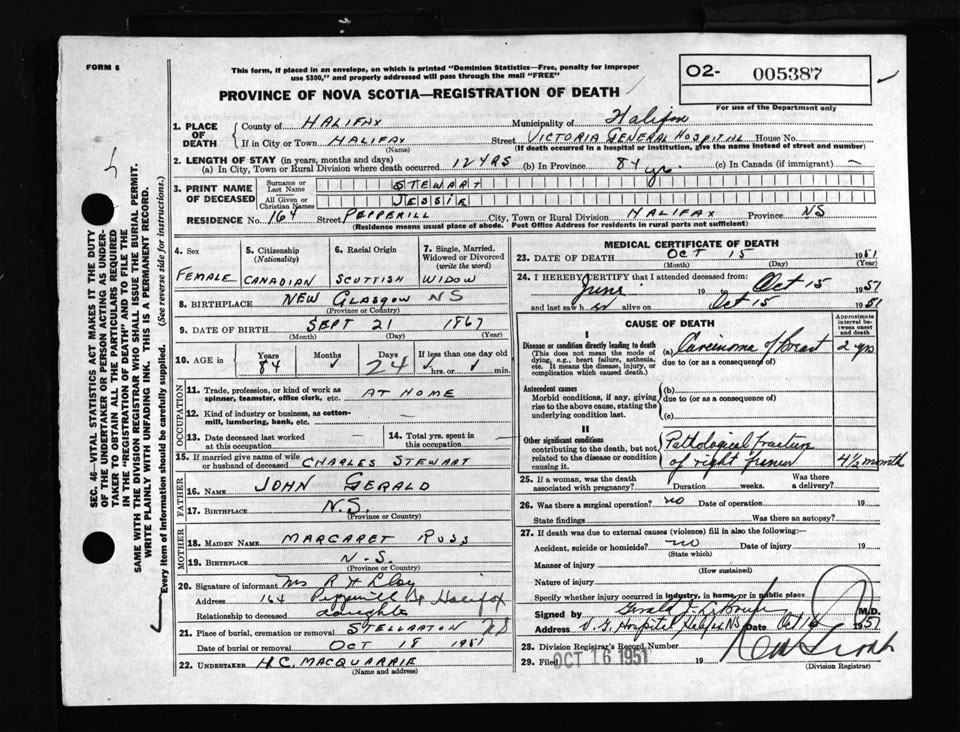 FORM 6
This form, if placed in an envelope, on which is printed "Dominion Statistics—Free, penalty for improper
use $300," and properly addressed will pass through the mail "FREE"
PROVINCE OF NOVA SCOTIA—REGISTRATION OF DEATH
O2- 005387
For use of the Department only
SEC. 46—VITAL STATISTICS ACT MAKES IT THE DUTY
OF THE UNDERTAKER OR PERSON ACTING AS UNDER-
TAKER TO OBTAIN ALL THE PARTICULARS REQUIRED
IN THE "REGISTRATION OF DEATH" AND TO FILE THE
SAME WITH THE DIVISION REGISTRAR WHO SHALL ISSUE THE BURIAL PERMIT.
WRITE PLAINLY WITH UNFADING INK. THIS IS A PERMANENT RECORD.
Every item of information should be carefully supplied. (See reverse side for instructions.)
1. PLACE OF DEATH
County of HALIFAX Municipality of Halifax
If in City or Town HALIFAX Street VICTORIA GENERAL HOSPITAL House No.
(Name) (If death occurred in a hospital or institution, give the name instead of street and number)
2. LENGTH OF STAY (in years, months and days)
(a) In City, Town or Rural Division where death occurred 12 YRS (b) In Province 84 yrs (c) In Canada (if immigrant) —
3. PRINT NAME OF DECEASED
Surname or Last Name STEWART
All Given or Christian Names JESSIE
RESIDENCE No. 164 Street PEPPERILL City, Town or Rural Division HALIFAX Province NS
(Residence means usual place of abode. Post Office Address for residents in rural parts not sufficient)
4. Sex FEMALE
5. Citizenship (Nationality) CANADIAN
6. Racial Origin SCOTTISH
7. Single, Married, Widowed or Divorced (write the word) WIDOW
8. BIRTHPLACE NEW GLASGOW NS
(Province or Country)
9. DATE OF BIRTH SEPT 21 1867
(Month) (Day) (Year)
10. AGE in Years 84 Months Days 24 If less than one day old hrs. or min.
OCCUPATION
11. Trade, profession, or kind of work as spinner, teamster, office clerk, etc. AT HOME
12. Kind of industry or business, as cotton-mill, lumbering, bank, etc. —
13. Date deceased last worked at this occupation —
14. Total yrs. spent in this occupation —
15. If married give name of wife or husband of deceased CHARLES STEWART
FATHER
16. NAME JOHN GERALD
17. BIRTHPLACE N.S.
(Province or Country)
MOTHER
18. MAIDEN NAME MARGARET ROSS
19. BIRTHPLACE N.S.
(Province or Country)
20. Signature of informant Mrs R H
Address 164 St Halifax
Relationship to deceased daughter
21. Place of burial, cremation or removal STELLARTON NS
Date of burial or removal OCT 18 1951
22. UNDERTAKER H.C. MACQUARRIE
(Name and address)
MEDICAL CERTIFICATE OF DEATH
23. DATE OF DEATH OCT 15 1951
(Month) (Day) (Year)
24. I HEREBY CERTIFY that I attended deceased from:
June 19 to Oct 15 1951
and last saw h er alive on Oct 15 1951
CAUSE OF DEATH
Approximate interval between onset and death
I
Disease or condition directly leading to death
(This does not mean the mode of dying, e.g., heart failure, asthenia, etc. It means the disease, injury, or complication which caused death.)
(a) Carcinoma of breast 2 yrs
due to (or as a consequence of)
Antecedent causes
Morbid conditions, if any, giving rise to the above cause, stating the underlying condition last.
(b)
due to (or as a consequence of)
(c)
II
Other significant conditions
contributing to the death, but not related to the disease or condition causing it.
Pathological fracture
of right femur 4½ month
25. If a woman, was the death associated with pregnancy? Duration weeks. Was there a delivery?
26. Was there a surgical operation? no Date of operation 19
State findings Was there an autopsy?
27. If death was due to external causes (violence) fill in also the following:—
Accident, suicide or homicide? no Date of injury 19
(State which)
Manner of injury
(How sustained)
Nature of injury
Specify whether injury occurred in industry, in home, or in public place
Signed by Gerald M.D.
Address V. G. Hospital NS Date Oct 1951
28. Division Registrar's Record Number
29. Filed OCT 16 1951 19
(Division Registrar)